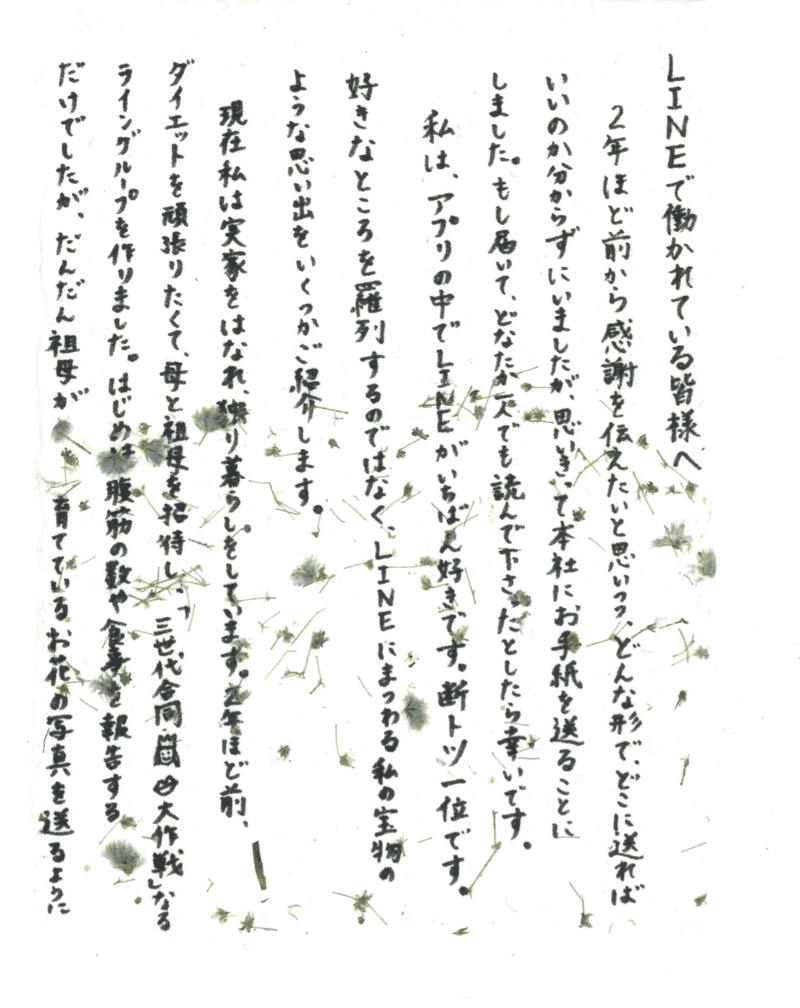 LINEで働かれている皆様へ
2年ほど前から感謝を伝えたいと思いつつ、どんな形で、どこに送れば
いいのか分からずにいましたが、思いきって本社にお手紙を送ることに
しました。もし届いて、どなたか一人でも読んで下さったとしたら幸いです。
私は、アプリの中でLINEがいちばん好きです。断トツ一位です。
好きなところを羅列するのではなく、LINEにまつわる私の宝物の
ような思い出をいくつかご紹介します。
現在私は実家をはなれ、独り暮らしをしています。2年ほど前、
ダイエットを頑張りたくて、母と祖母を招待し、「三世代合同 大作戦」なる
ライングループを作りました。はじめは腹筋の数や食事を報告する
だけでしたが、だんだん祖母が 育てているお花の写真を送るように